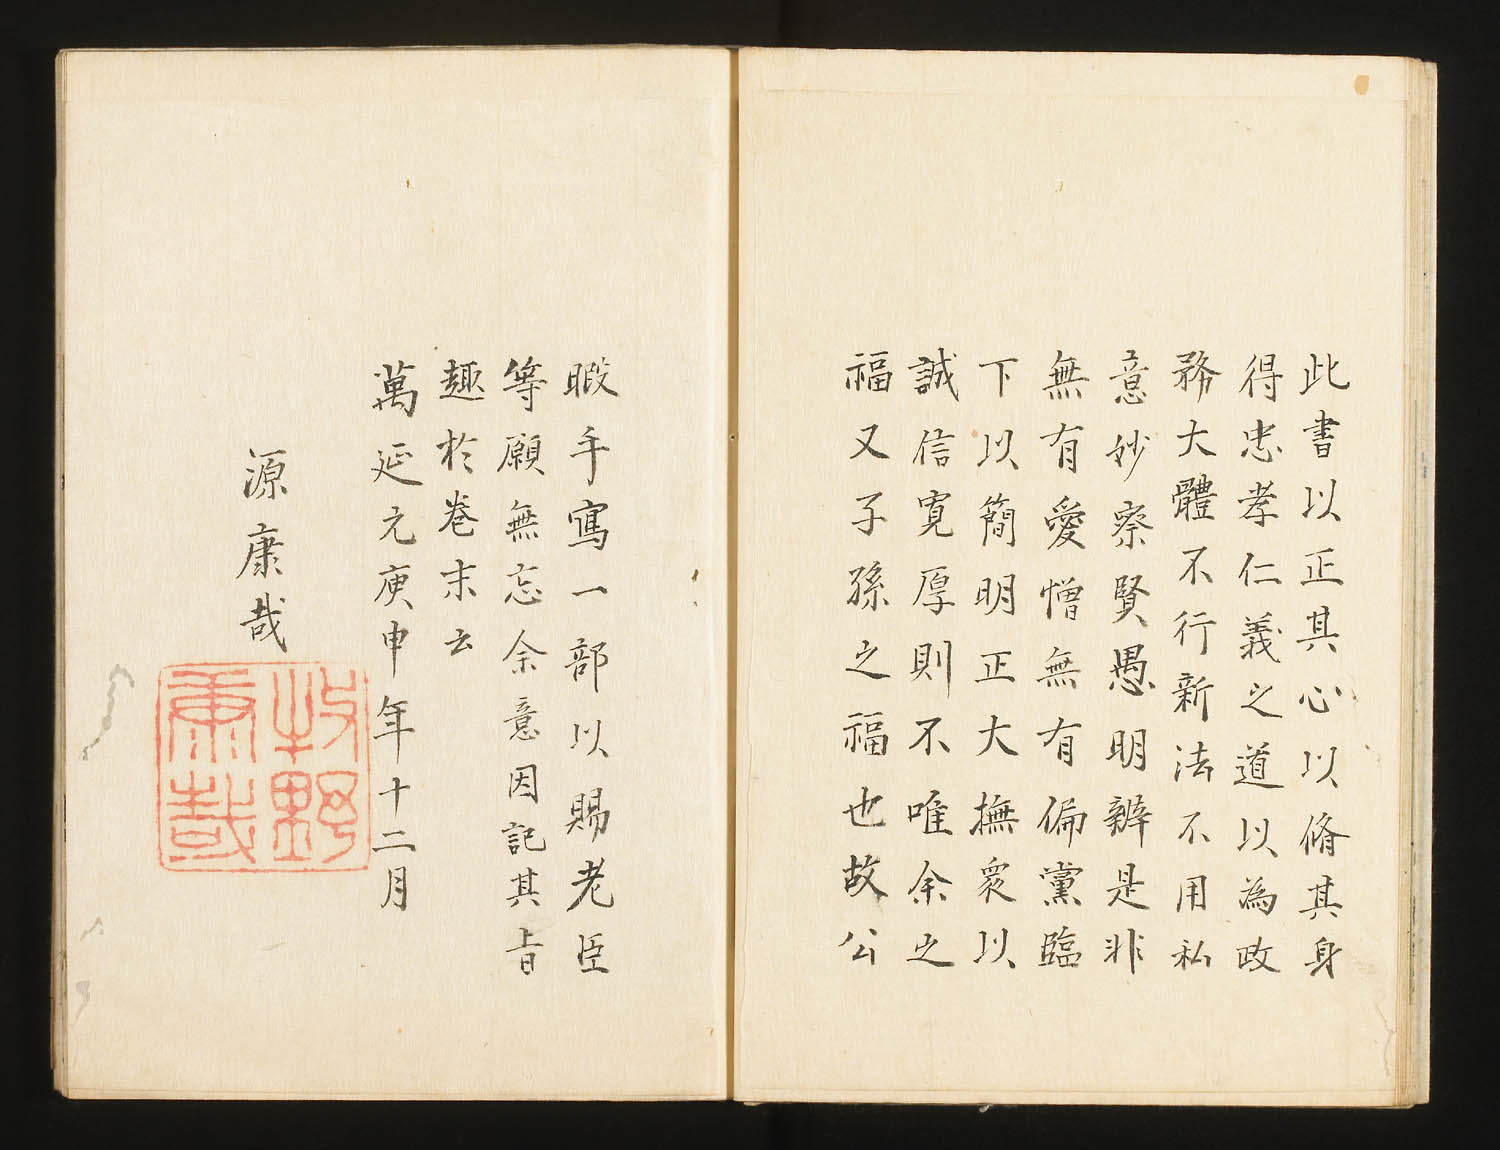 此書以正其心以脩其身
得忠孝仁義之道以為政
務大體不行新法不用私
意妙察賢愚明辨是非
無有愛憎無有偏黨臨
下以簡明正大撫衆以
誠信寛厚則不唯余之
福又子孫之福也故公
暇手寫一部以賜老臣
等願無忘余意因記其旨
趣於巻末云
萬延元庚申年十二月
源康哉
牧野
康哉